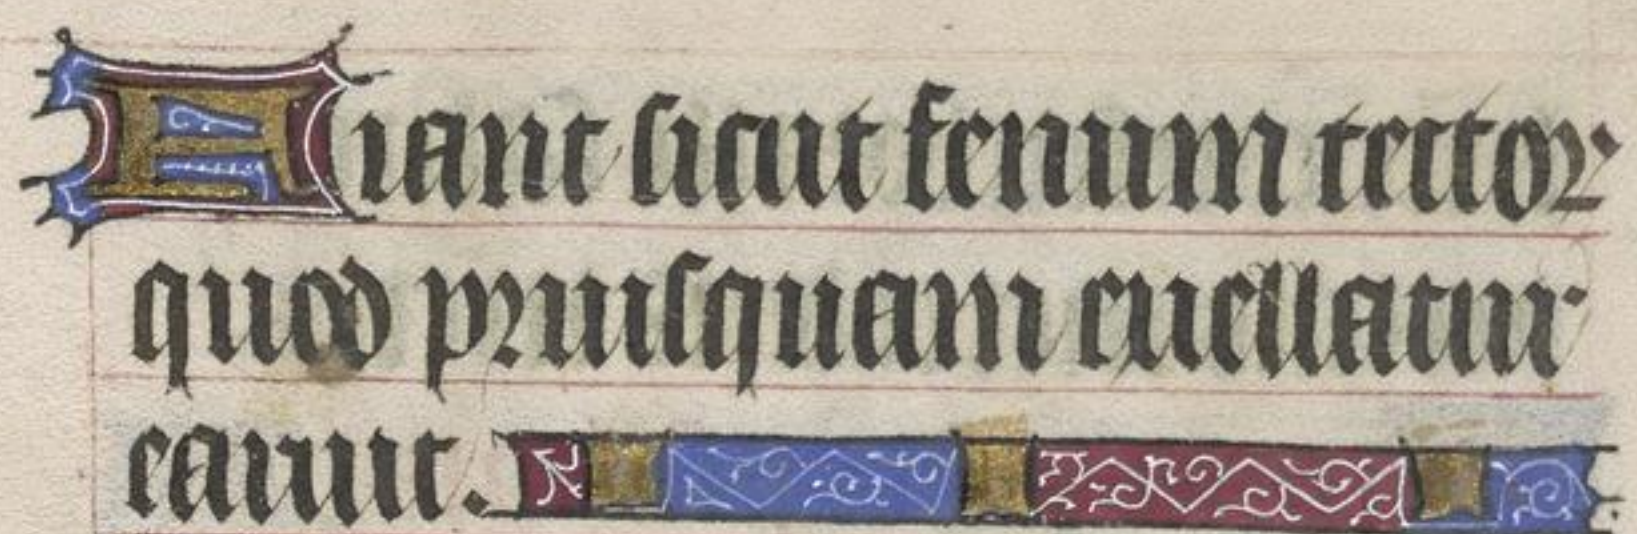 Fiant sicut fenum tectoꝝ
quod priusquam euellatur
earuit.